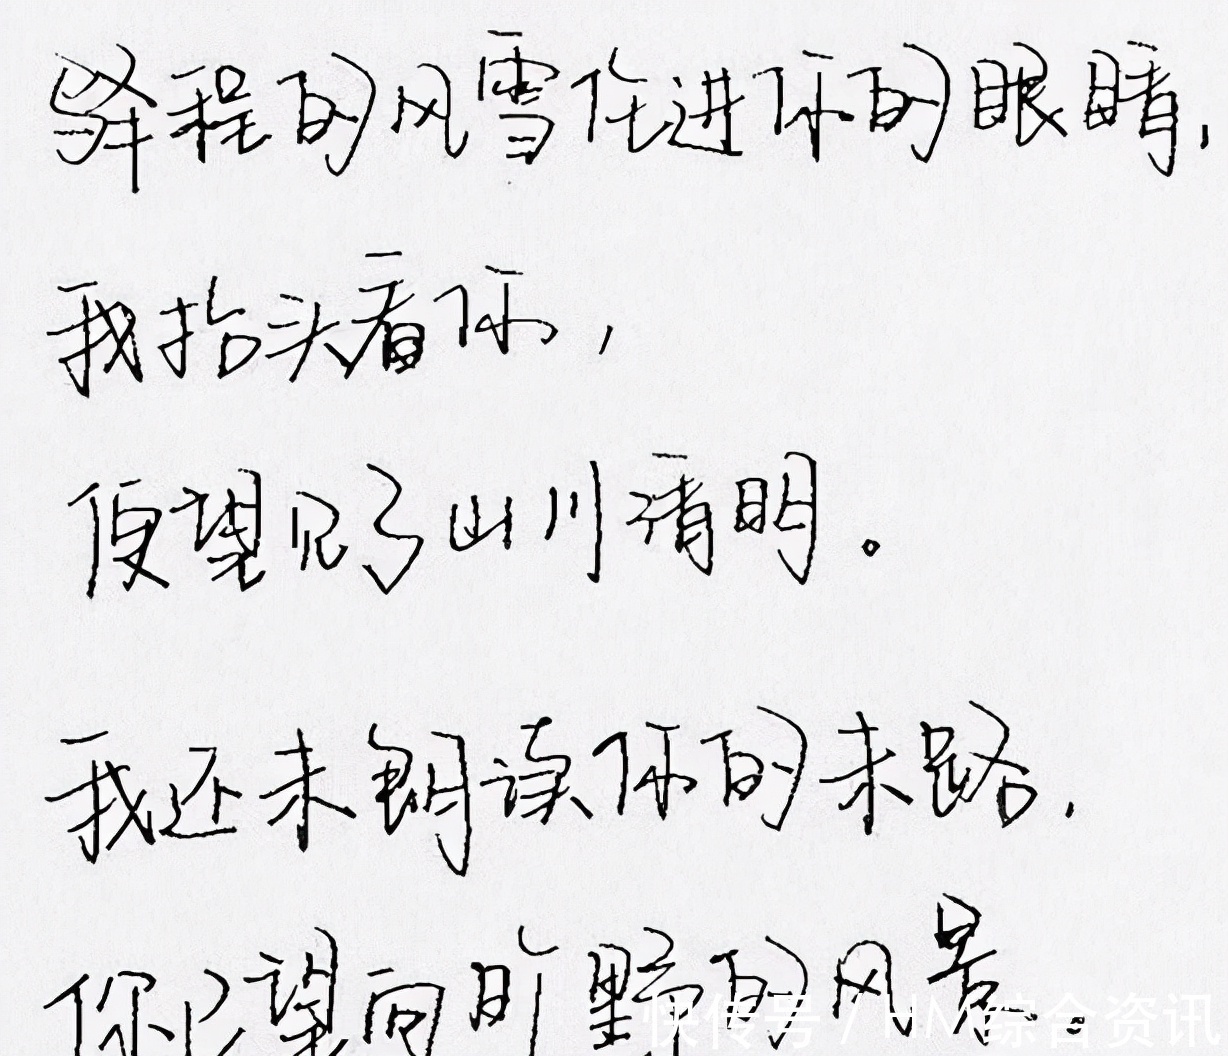 驿程的风雪住进你的眼睛，
我抬头看你，
便望见了山川清明。
我还未朗读你的来路，
你已望向旷野的风景。
快传号 / HM综合资讯